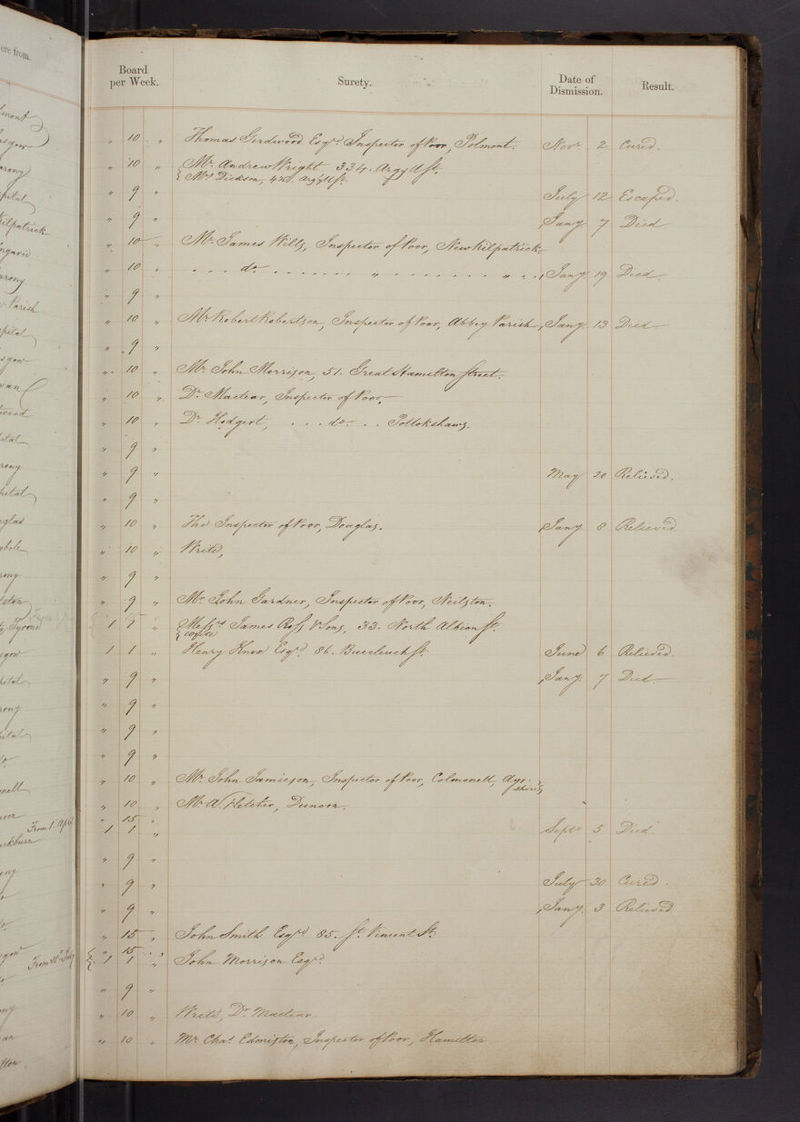 ere from.
Board per Week. Surety. Date of Dismission. Result.
" 10 " Thomas Girdwood Esqr. Inspector of Poor, Polmont. Novr. 2 Cured.
" 10 " Mr. Andrew Wright 334. Argyll St.
Mrs Dickson, Argyll St.
" 9 " July 12 Escaped.
" 9 " Jany 7 Died
" 10 " Mr. James Wills, Inspector of Poor, New Kilpatrick
" 10 " do " " Jany 19 Died.
" 9 "
" 10 " Mr Robert Robertson, Inspector of Poor, Abbey Parish, Jany. 13 Died
" 9 "
" 10 " Mr John Morrison, 51. Great Hamilton Street.
" 10 " Dr. Maclear, Inspector of Poor
" 10 " Dr. Hodgert, do Pollokshaws.
" 9 "
" 9 " May 20 Relieved.
" 9 "
" 10 " The Inspector of Poor, Douglas. Jany 8 Relieved
" 10 " Write,
" 9 "
" 9 " Mr. John Gardner, Inspector of Poor, Neilston.
1 5 " Messrs James Ross & Sons, 33. North Albion St.
1 1 " Henry Knox Esqr. 86. Buccleuch St. June 6 Relieved.
" 9 " Jany. 7 Died.
" 9 "
" 9 "
" 9 "
" 10 " Mr. John Jamieson, Inspector of Poor, Colmonell, Ayr-shire,
" 10 " Mr A. Fletcher, Dunoon.
From 1 Apl " 15
1 1 " Septr 5 Died.
" 9 "
" 9 " July 30 Cured.
" 9 " Jany. 3 Relieved
" 15 " John Smith Esqr. 85. St. Vincent St.
" 15 "
1 1 " John Morrison Esqr.
" 9 "
" 10 " Write, Dr. Maclear.
" 10 " Mr Chas. Edmiston, Inspector of Poor, Hamilton